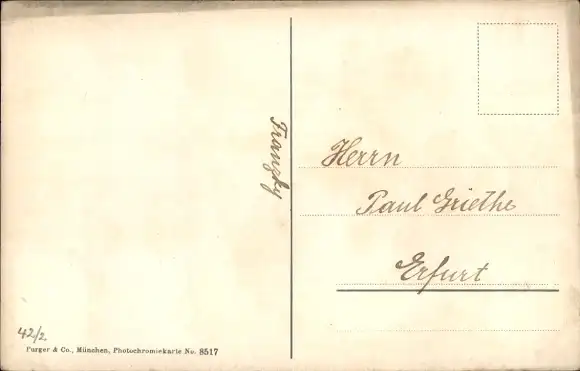 Franzky
Herrn
Paul Griethe
Erfurt
42/2
Purger & Co., München, Photochromiekarte No. 8517